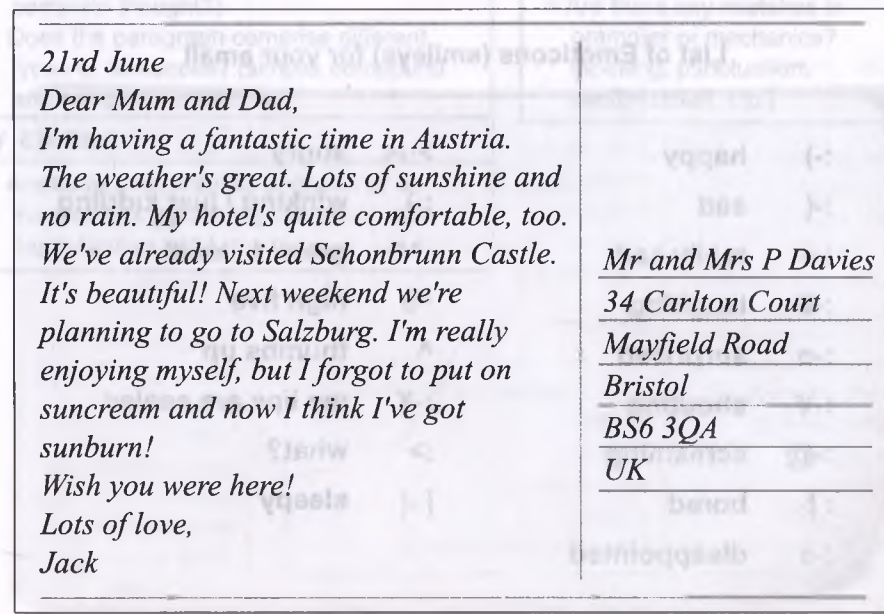 21rd June
Dear Mum and Dad,
I'm having a fantastic time in Austria.
The weather's great. Lots of sunshine and
no rain. My hotel's quite comfortable, too.
We've already visited Schonbrunn Castle.
It's beautiful! Next weekend we're
planning to go to Salzburg. I'm really
enjoying myself, but I forgot to put on
suncream and now I think I've got
sunburn!
Wish you were here!
Lots of love,
Jack
Mr and Mrs P Davies
34 Carlton Court
Mayfield Road
Bristol
BS6 3QA
UK